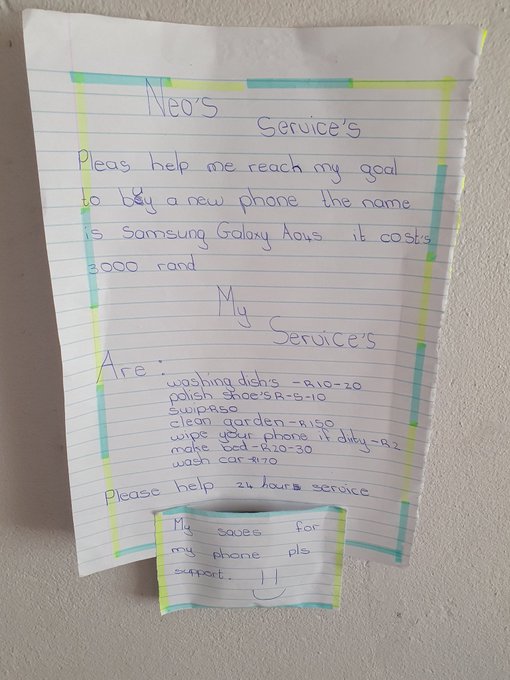 Neo's
Service's
Pleas help me reach my goal
to buy a new phone the name
is Samsung Galaxy A04s it cost's
3000 rand
My
Service's
Are :
washing dish's -R10-20
polish shoe's R-5-10
swip-R50
clean garden -R150
wipe your phone if dirty -R2
make bed -R20-30
wash car -R170
Please help 24 hours service
My saves for
my phone pls
support.